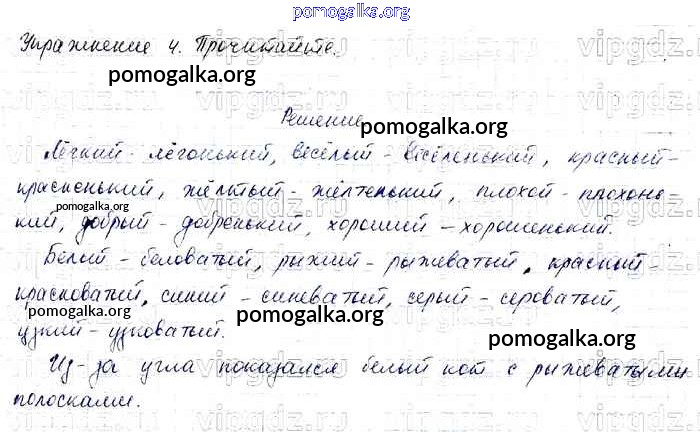 pomogalka.org
Упражнение 4. Прочитайте.
vipgdz.ru
pomogalka.org
Решение
pomogalka.org
Лёгкий - лёгонький, весёлый - весёленький, красный -
красненький, жёлтый - жёлтенький, плохой - плохонь-
pomogalka.org
кий, добрый - добренький, хороший - хорошенький.
pomogalka.org
Белый - беловатый, рыжий - рыжеватый, красный -
красноватый, синий - синеватый, серый - сероватый,
pomogalka.org
pomogalka.org
узкий - узковатый.
pomogalka.org
Из-за угла показался белый кот с рыжеватыми
полосками.